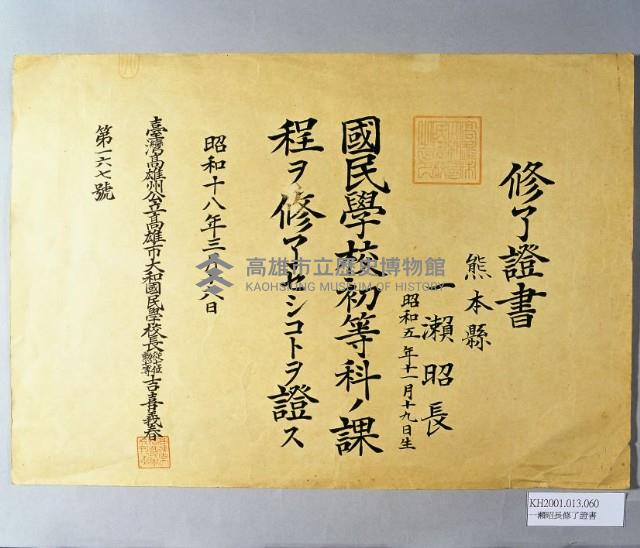 修了證書
熊本縣
一瀨昭長
昭和五年十一月十九日生
國民學校初等科ノ課
程ヲ修了セシコトヲ證ス
昭和十八年三月十八日
臺灣高雄州公立高雄市大和國民學校長
吉喜義春
第一六七號
高雄市立歷史博物館
KAOHSIUNG MUSEUM OF HISTORY
KH2001.013.060
一瀨昭長修了證書